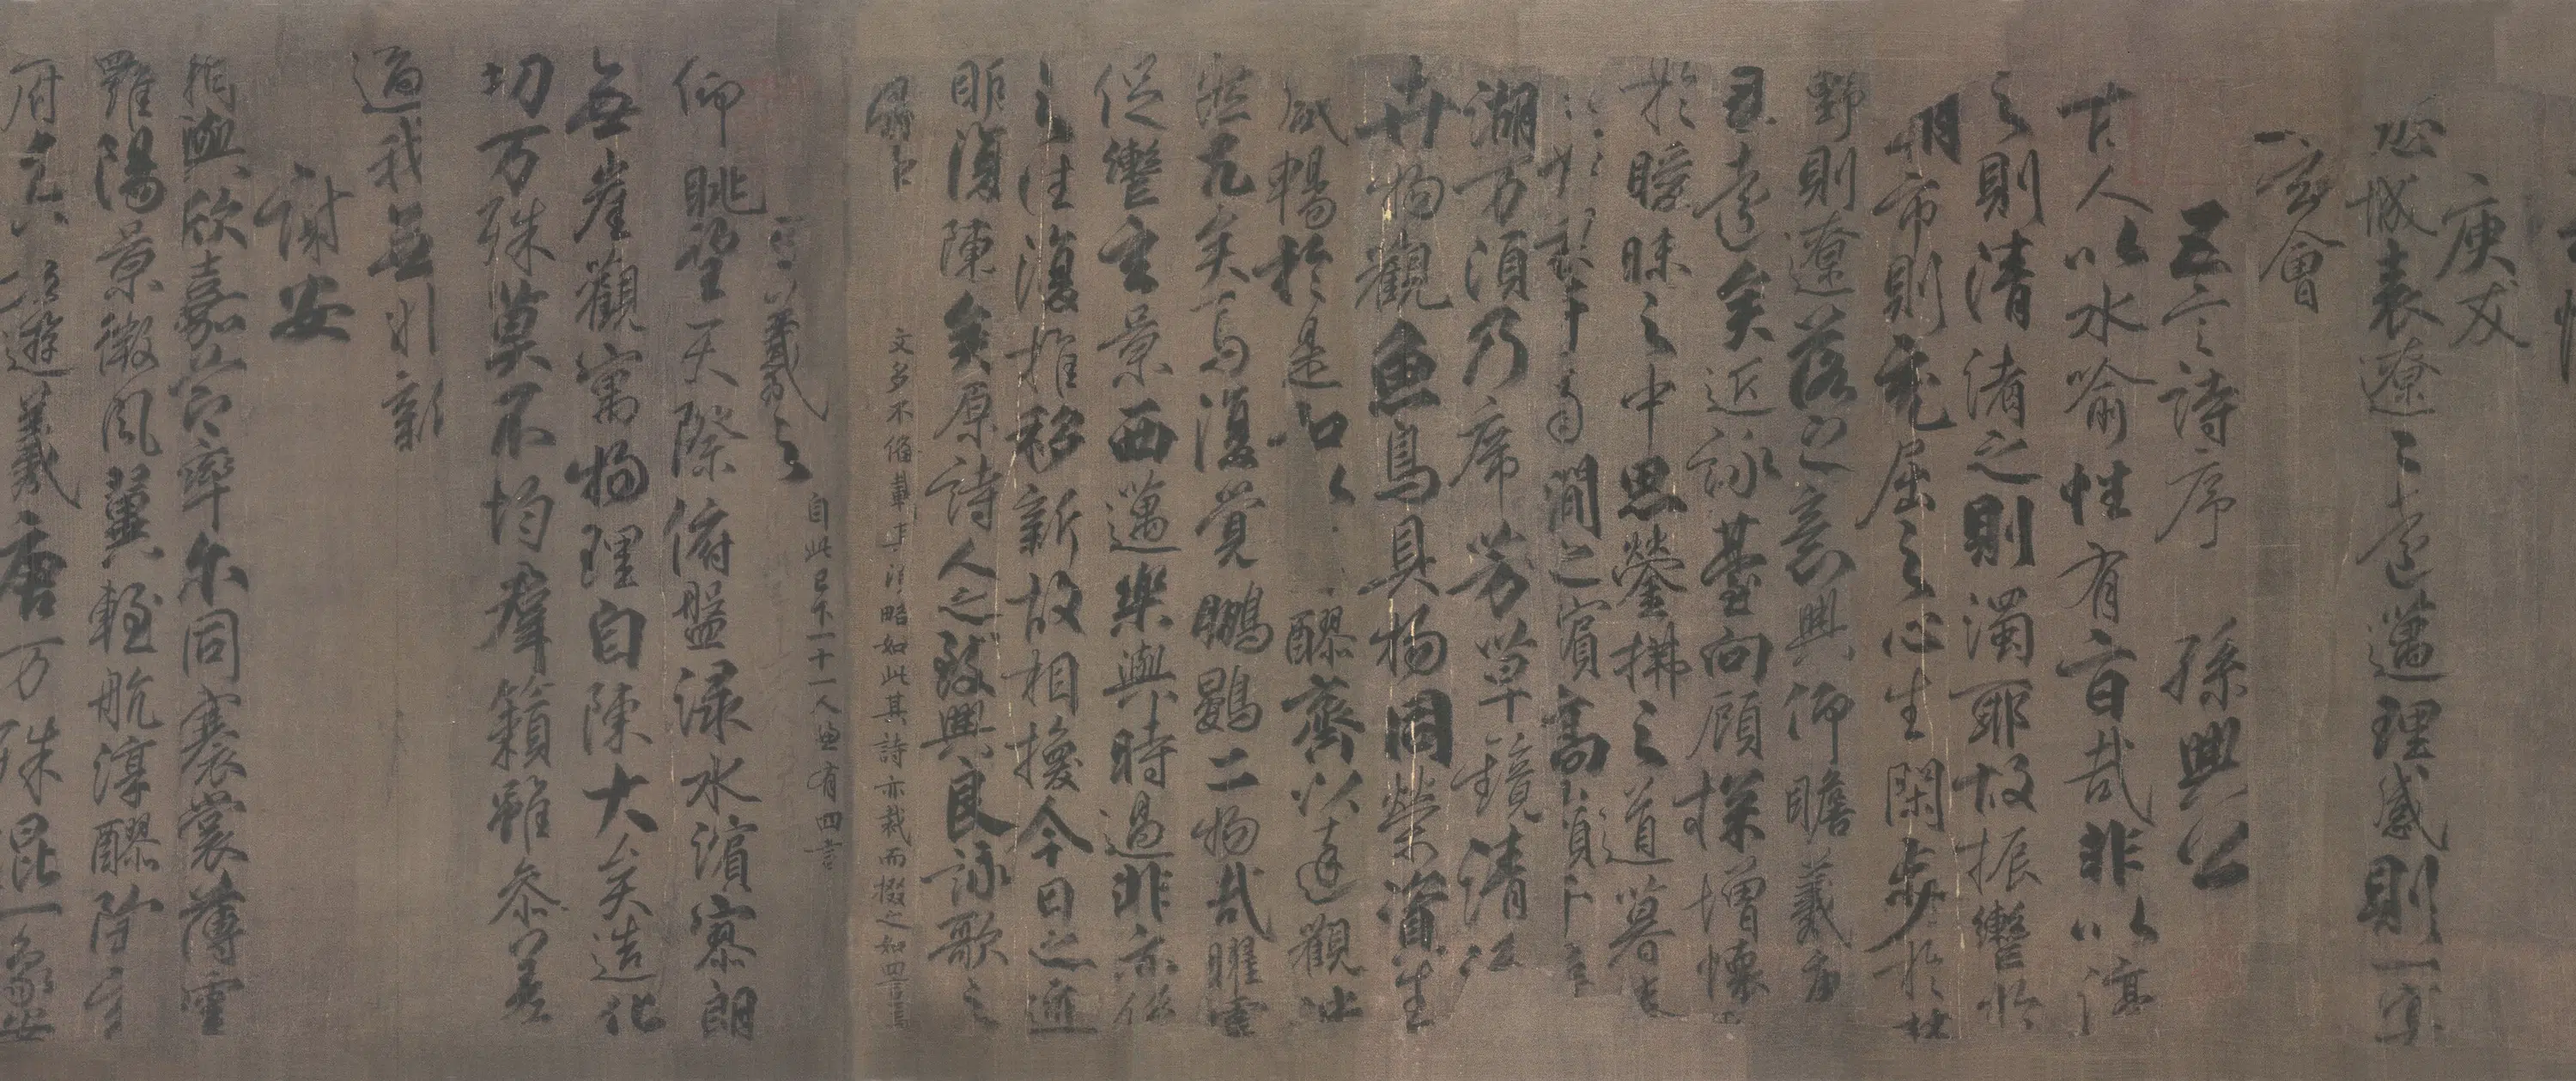 庾友
遐城表遼遼遠邁理感則一冥
然玄會
五言詩序　孫興公
古人以水喻性有旨哉非以渟
之則清淆之則濁耶故振轡於
朝市則充屈之心生閑步於林
野則遼落之意興仰瞻羲唐
邈遠矣近詠臺閣顧探增懷
於曖昧之中思縈拂之道暮春
澗之濱高嶺千尋
湖万頃乃席芳草鏡清流
卉物觀魚鳥具物同榮資生
咸暢於是和以醪齊以達觀泱
然兀矣焉復覺鵬鷃二物哉曜靈
促轡玄景西邁樂與時過悲亦係
之往復推移新故相換今日之迹
明復陳矣原詩人之致興良詠歌之
有由
文多不備載其大略如此其詩亦裁而掇之如四言焉
王羲之
自此已下一十一人並有四言
仰眺望天際俯盤淥水濱寥朗
無崖觀寓物理自陳大矣造化
切万殊莫不均群籟雖參差
適我無非新
謝安
相與欣嘉節率尓同褰裳薄雲
羅陽景微風翼輕航淳醪陶玄
府兀若遊羲唐万殊混一象安